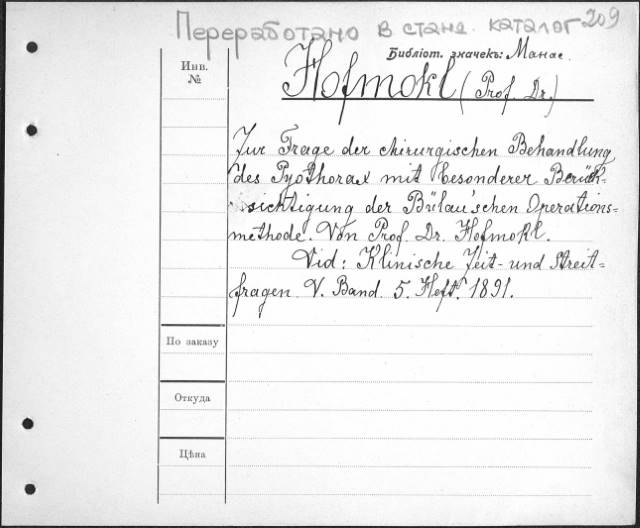 Переработано в станд. каталог 209
Библіот. значекъ: Манас.
Инв.
№
Hofmokl (Prof Dr.)
Zur Frage der chirurgischen Behandlung
des Pyothorax mit besonderer Berück-
sichtigung der Bülau'schen Operations=
methode. Von Prof. Dr. Hofmokl.
Vid: Klinische Zeit- und Streit=
fragen. V. Band. 5. Heft. 1891.
По заказу
Откуда
Цѣна